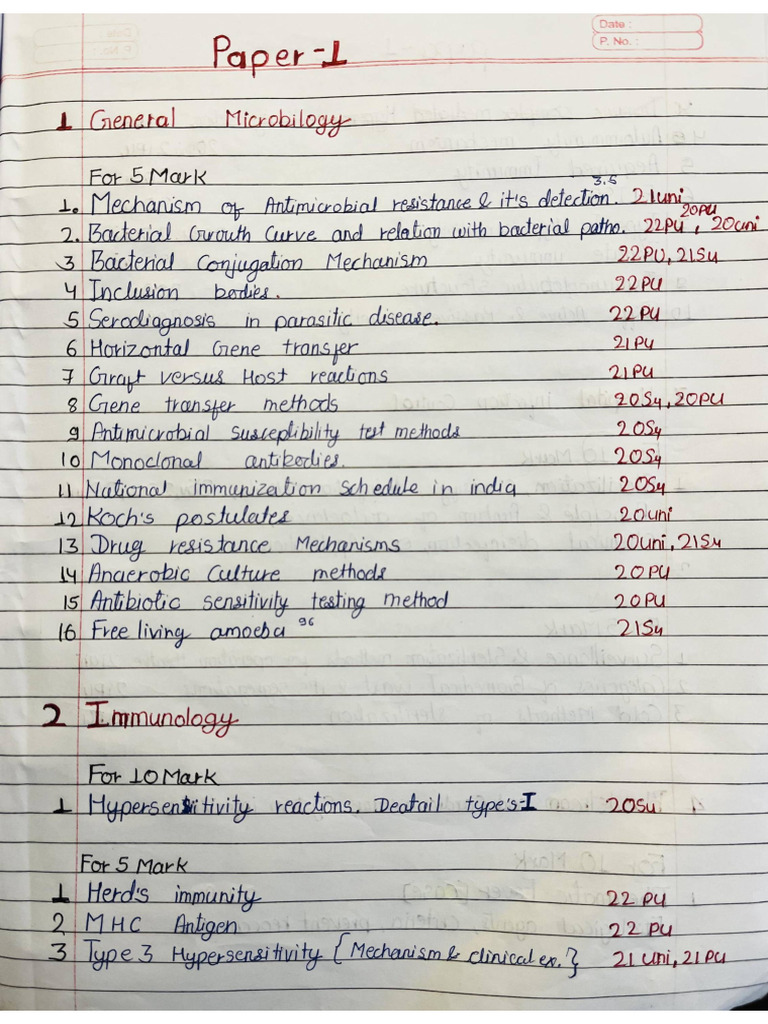 Date :
P. No. :
Paper-1
1 General Microbilogy
For 5 Mark
1. Mechanism of Antimicrobial resistance & it's detection. 3.5 21uni
2. Bacterial Growth Curve and relation with bacterial patho. 22PU, 20PU 20uni
3 Bacterial Conjugation Mechanism 22PU, 21Su
4 Inclusion bodies. 22PU
5 Serodiagnosis in parasitic disease. 22PU
6 Horizontal Gene transfer 21PU
7 Graft versus Host reactions 21PU
8 Gene transfer methods 20Su, 20PU
9 Antimicrobial susceplibility test methods 20Su
10 Monoclonal antibodies. 20Su
11 National immunization schedule in india 20Su
12 Koch's postulates 20uni
13 Drug resistance Mechanisms 20uni, 21Su
14 Anaerobic Culture methods 20PU
15 Antibiotic sensitivity testing method 20PU
16 Free living amoeba 96 21Su
2 Immunology
For 10 Mark
1 Hypersensitivity reactions. Deatail type's-I 20Su
For 5 Mark
1 Herd's immunity 22 PU
2 MHC Antigen 22 PU
3 Type 3 Hypersensitivity { Mechanism & clinical ex. } 21 Uni, 21 PU